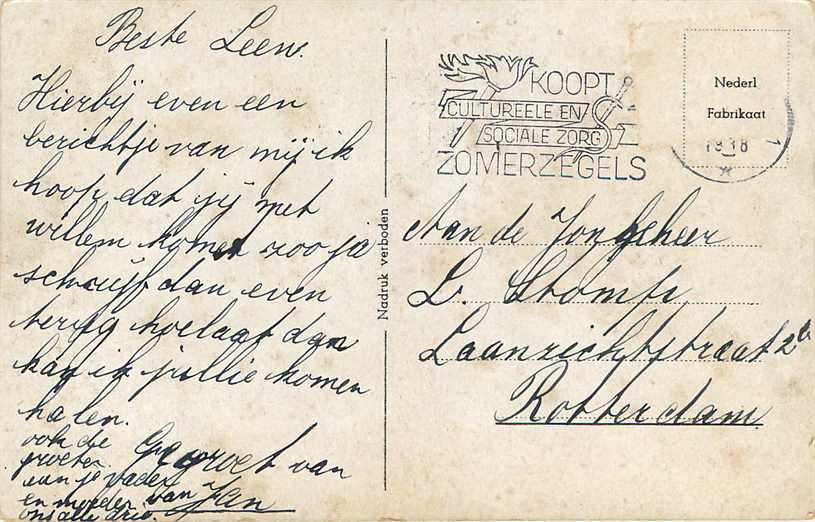 Beste Leen.
Hierbij even een
berichtje van mij ik
hoop dat jij met
willem komen zoo ja
schrijf dan even
terug hoelaat dan
kan ik jullie komen
halen.
ook de
groeten
aan je vader
en moeder van
ons alle drie.
Gegroet van
Jan
Nadruk verboden
KOOPT
CULTUREELE EN
SOCIALE ZORG
ZOMERZEGELS
Nederl
Fabrikaat
1938
1
Aan de Jongeheer
L. Stomps
Laanzichtstraat 2
Rotterdam